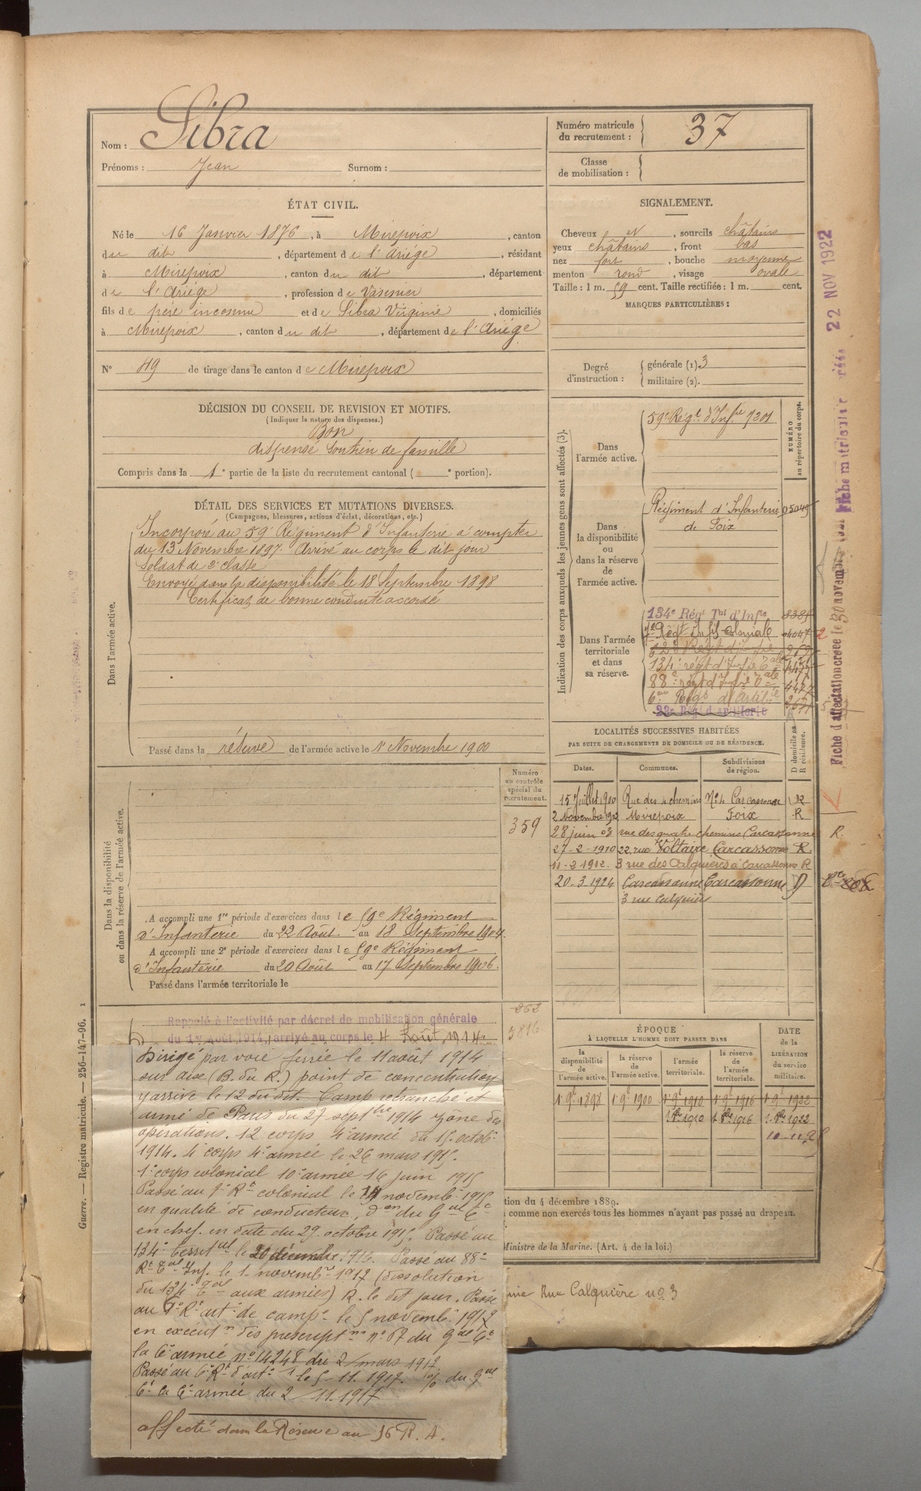 Nom : Sibra
Prénoms : Jean Surnom :
ÉTAT CIVIL.
Né le 16 Janvier 1876, à Mirepoix, canton
du dit, département de l'Ariège, résidant
à Mirepoix, canton du dit, département
de l'Ariège, profession de Vannier
fils de père inconnu et de Sibra Virginie, domiciliés
à Mirepoix, canton du dit, département de l'Ariège
N° 49 de tirage dans le canton de Mirepoix
DÉCISION DU CONSEIL DE REVISION ET MOTIFS.
(Indiquer la nature des dispenses.)
Bon
dispensé soutien de famille
Compris dans la 1e partie de la liste du recrutement cantonal ( e portion).
DÉTAIL DES SERVICES ET MUTATIONS DIVERSES.
(Campagnes, blessures, actions d'éclat, décorations, etc.)
Dans l'armée active.
Incorporé au 59e Régiment d'Infanterie à compter
du 13 Novembre 1897. Arrivé au corps le dit jour
Soldat de 2e classe
Envoyé dans la disponibilité le 18 Septembre 1898
Certificat de bonne conduite accordé
Passé dans la réserve de l'armée active le 1er Novembre 1900
Numéro
au contrôle
spécial du
recrutement.
359
Dans la disponibilité
ou dans la réserve de l'armée active.
A accompli une 1re période d'exercices dans le 59e Régiment
d'Infanterie du 22 Août au 18 Septembre 1904
A accompli une 2e période d'exercices dans le 59e Régiment
d'Infanterie du 20 Août au 17 Septembre 1906.
Passé dans l'armée territoriale le
Rappelé à l'activité par décret de mobilisation générale
du 1er août 1914, arrivé au corps le 4 Août 1914.
Dirigé par voie ferrée le 11 août 1914
sur aix (B. du R.) point de concentration
y arrive le 12 du dit. Camp retranché et
armé de Paris du 27 septbre 1914 zone des
opérations. 12 corps 4e armée du 15 octobre
1914. 4 corps 4e armée le 26 mars 1915.
1er corps colonial 10e armée 14 juin 1915
Passé au Rt colonial le novembre 1915
en qualité de conducteur, don du Gal Ct
en chef. en date du 29 octobre 1915. Passé au
134e territal le 20 décembre 1916. Passé au 88e
Rt Tal Inf. le 1er novembre 1917 (dissolution
du 134e Tal aux armées) R. le dit jour. Passé
au Rt art. de camp. le 5 novembre 1917
en exécution des prescriptions n° 67 du Gal Ct
la 6e armée n° 14248 du 2 mars 1917
Passé au 6e Rt d'artie le 5-11-1917. du Gal
Ct la 6e armée du 2/11.1917
affecté dans la Réserve au 56 R. A.
Guerre. — Registre matricule. — 256-147-96. 1
Numéro matricule
du recrutement : 37
Classe
de mobilisation :
SIGNALEMENT.
Cheveux et, sourcils châtains
yeux châtains, front bas
nez fort, bouche moyenne
menton rond, visage ovale
Taille : 1 m. 59 cent. Taille rectifiée : 1 m. cent.
MARQUES PARTICULIÈRES :
Degré
d'instruction :
générale (1) 3
militaire (2).
Indication des corps auxquels les jeunes gens sont affectés (3).
NUMÉRO
au répertoire du corps.
Dans
l'armée active.
59e Régt d'Infie 7301
Dans
la disponibilité
ou
dans la réserve
de
l'armée active.
Régiment d'Infanterie
de Foix
Dans l'armée
territoriale
et dans
sa réserve.
134e Régt Tal d'Infie
Régt Colonial
134e régt d'Infie Tale
88e régt d'Infie Tale
6me Régt d'Artie
Régt d'Artillerie
LOCALITÉS SUCCESSIVES HABITÉES
PAR SUITE DE CHANGEMENTS DE DOMICILE OU DE RÉSIDENCE.
Dates. Communes. Subdivisions
de région.
D domicile ou
R résidence.
15 Juillet 1900 Rue des 4 chemins N° 4 Carcassonne R
2 Novembre 1902 Mirepoix Foix R
28 juin 03 rue des quatre chemins Carcassonne R.
27-2-1910 22 rue Voltaire Carcassonne R
11-3-1912. 3 rue des Calquières à Carcassonne R
20-3-1926 Carcassonne Carcassonne D
3 rue Calquière
ÉPOQUE
À LAQUELLE L'HOMME DOIT PASSER DANS
DATE
de la
LIBÉRATION
du service
militaire.
la
disponibilité
de
l'armée active.
la réserve
de
l'armée active.
l'armée
territoriale.
la réserve
de
l'armée
territoriale.
1er 9bre 1898 1er 9bre 1900 1er 9bre 1910 1er 9bre 1916 1er 9bre 1922
1er 8bre 1910 1er 8bre 1916 1er 8bre 1922
10-11-22
tion du 4 décembre 1889.
comme non exercés tous les hommes n'ayant pas passé au drapeau.
Ministre de la Marine. (Art. 4 de la loi.)
Rue Calquière n° 3
Fiche matricule créée 22 NOV 1922
Fiche d'affectation créée le 30 novembre